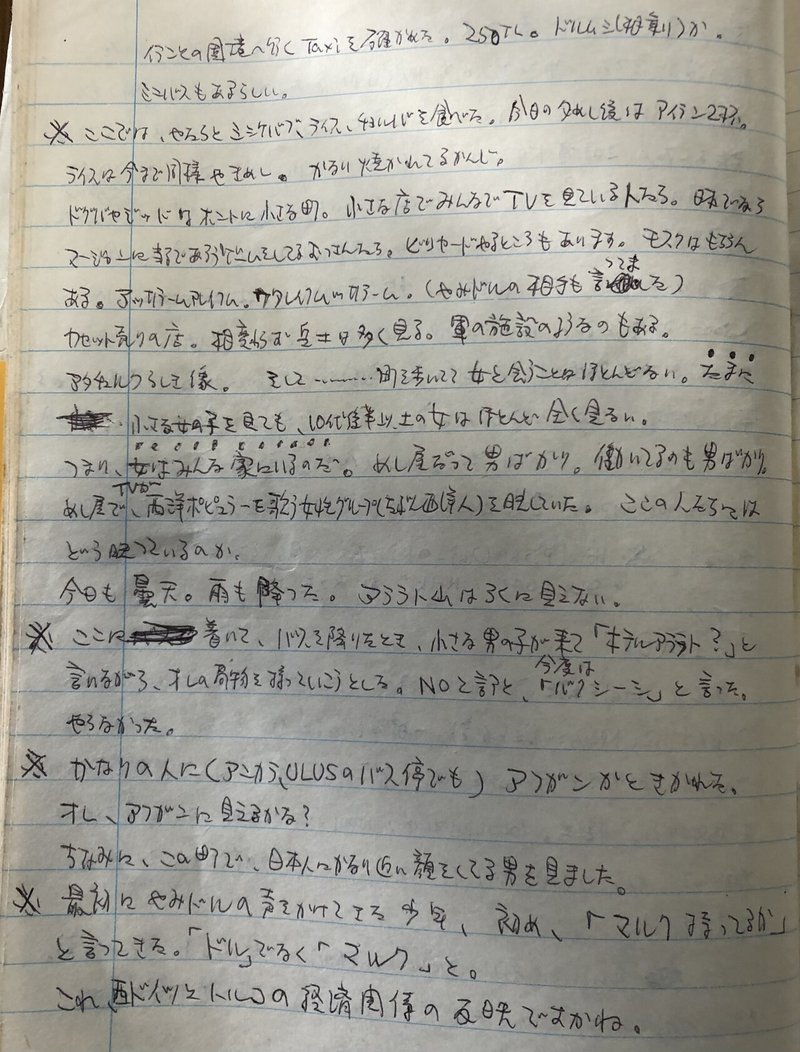 イランとの国境へ行くTaxiを確かめた。250TL。ドルムシ(相乗り)か。
ミニバスもあるらしい。
※ ここでは、やたらとミシケバブ、ライス、チョルバを食べた。今日の夕めし後はアイラン2杯。
ライスは今まで同様やきめし。かるく焼かれてるかんじ。
ドウバヤジッドはホントに小さな町。小さな店でみんなでTVを見ている人たち。日本でなら
マージャンに当るであろうゲームをしてるおっさんたち。ビリヤードやるところもあります。モスクはもちろん
ある。(やみドルの相手も言ってました)
カセット売りの店。相変わらず兵士は多く見る。軍の施設のようなのもある。
アタチュルクらしき像。そして………町を歩いてて女と会うことはほとんどない。たまに
小さな女の子を見ても、10代後半以上の女はほとんど全く見ない。
つまり、女はみんな家にいるのだ。めし屋だって男ばかり。働いてるのも男ばかり。
めし屋で、TVが西洋ポピュラーを歌う女性グループ(たぶん西洋人)を映していた。ここの人たちには
どう映っているのか。
今日も曇天。雨も降った。アララト山はろくに見えない。
※ ここに着いて、バスを降りたとき、小さな男の子が来て「ホテルアララト?」と
言いながら、オレの荷物を持っていこうとした。NOと言うと、今度は「バクシーシ」と言った。
やらなかった。
※ かなりの人に(アンカラ、ULUSのバス停でも)アフガンかときかれた。
オレ、アフガンに見えるかな?
ちなみに、この町で、日本人にかなり近い顔をしてる男を見ました。
※ 最初にやみドルの声をかけてきた少年、初め、「マルク持ってるか」
と言ってきた。「ドル」でなく「マルク」と。
これ、西ドイツとトルコの経済関係の反映ですかね。